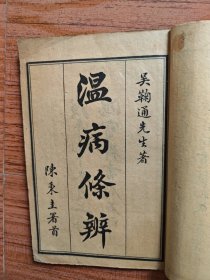 吴鞠通先生著
温病條辨
陳秉主署首